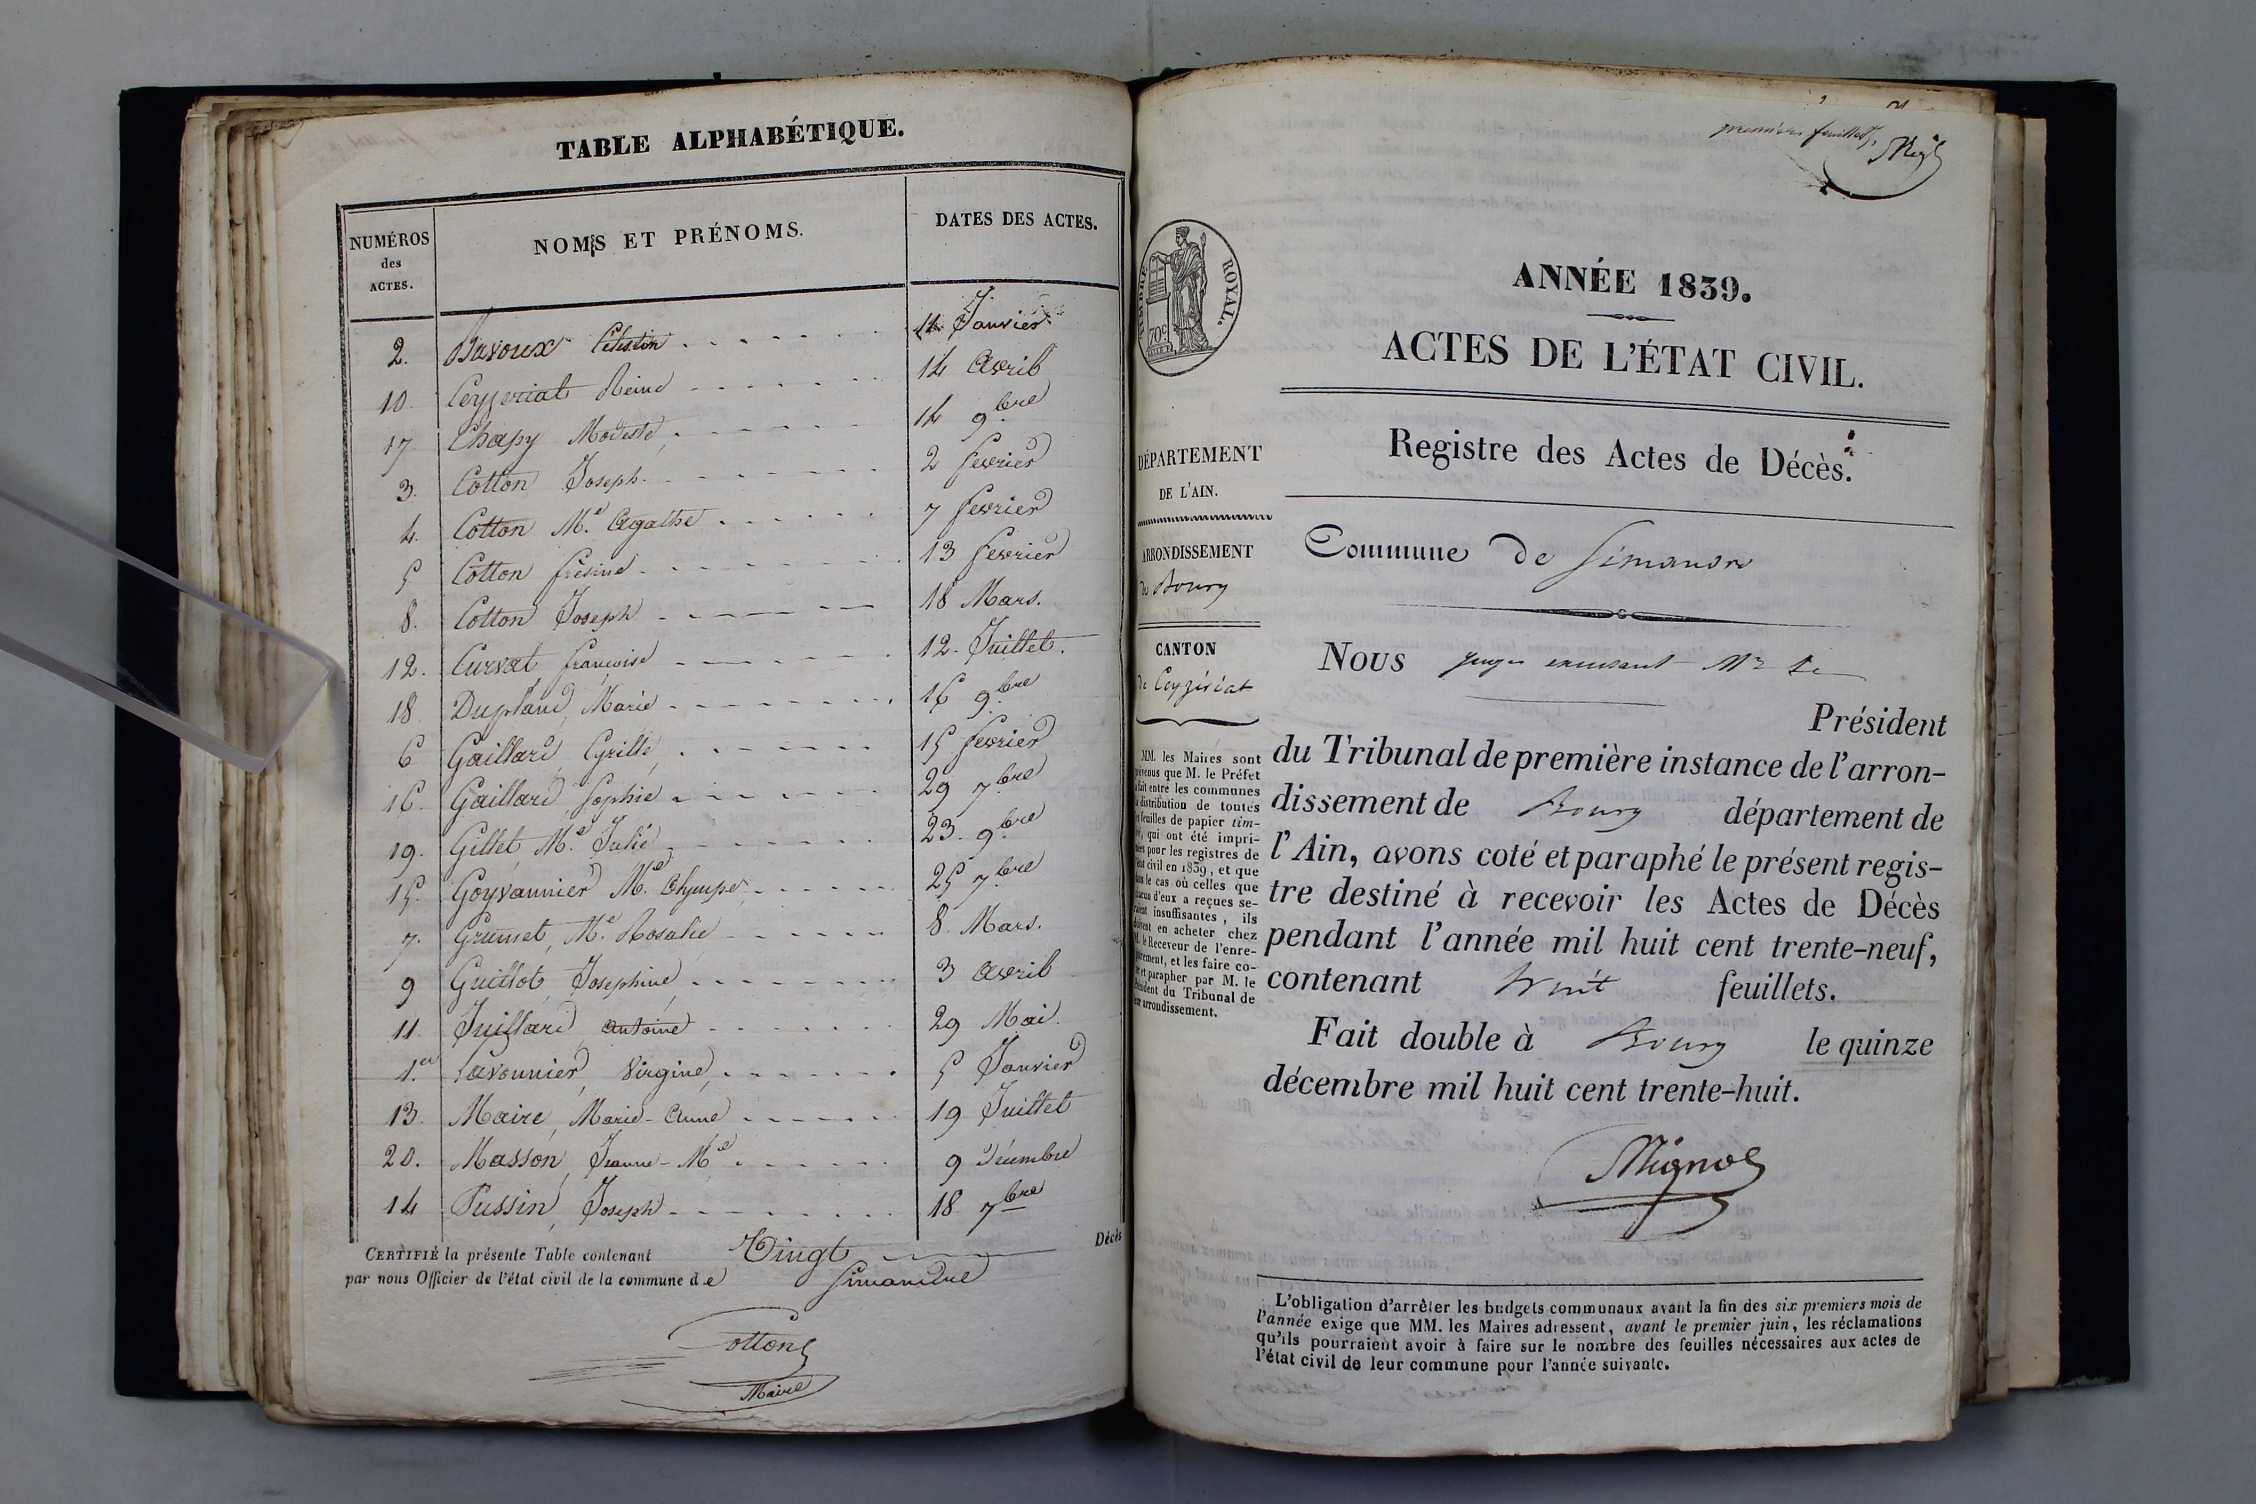 TABLE ALPHABÉTIQUE.
NUMÉROS des ACTES.
NOMS ET PRÉNOMS.
DATES DES ACTES.
2. Bavoux Célestin 14 Janvier
10 Ceyzeriat Reine 14 Avril
17 Chapy Modeste 14 9.bre
3. Cotton Joseph. 2 fevrier
4. Cotton M.e Agathe 7 fevrier
5 Cotton 13 fevrier
8. Cotton Joseph 18 Mars.
12. Curvat françoise 12. Juillet.
18 Dupland, Marie 16 9.bre
6 Gaillard, Cyrille, 15 fevrier
16. Gaillard, Sophie 29 7.bre
19. Gillet M.e Julie 23. 9.bre
15. Goyvannier M.e Olympe, 25 7.bre
7. Grumet, M.e Rosalie 8. Mars.
9 Guillot, Josephine, 3 Avril
11. Juillard, Antoine 29 Mai.
1.er Lavounier, Virgine, 5 Janvier
13. Maire, Marie-Anne 19 Juillet
20. Masson, Jeanne-M.e 9 Décembre
14 Pussin, Joseph 18 7bre
CERTIFIÉ la présente Table contenant Vingt Décès
par nous Officier de l'état civil de la commune de Simandre
Cotton
Maire
premier feuillet,
TIMBRE ROYAL.
70c
ANNÉE 1839.
ACTES DE L'ÉTAT CIVIL.
Registre des Actes de Décès.
DÉPARTEMENT
DE L'AIN.
ARRONDISSEMENT
de Bourg
CANTON
de Ceyzériat
MM. les Maires sont
prévenus que M. le Préfet
a fait entre les communes
la distribution de toutes
les feuilles de papier tim-
bré, qui ont été impri-
mées pour les registres de
l'état civil en 1839, et que
dans le cas où celles que
chacun d'eux a reçues se-
raient insuffisantes, ils
doivent en acheter chez
M. le Receveur de l'enre-
gistrement, et les faire co-
ter et parapher par M. le
Président du Tribunal de
leur arrondissement.
Commune de Simandre
NOUS juge excusant Mr Le
Président
du Tribunal de première instance de l'arron-
dissement de Bourg département de
l'Ain, avons coté et paraphé le présent regis-
tre destiné à recevoir les Actes de Décès
pendant l'année mil huit cent trente-neuf,
contenant huit feuillets.
Fait double à Bourg le quinze
décembre mil huit cent trente-huit.
L'obligation d'arrêter les budgets communaux avant la fin des six premiers mois de
l'année exige que MM. les Maires adressent, avant le premier juin, les réclamations
qu'ils pourraient avoir à faire sur le nombre des feuilles nécessaires aux actes de
l'état civil de leur commune pour l'année suivante.